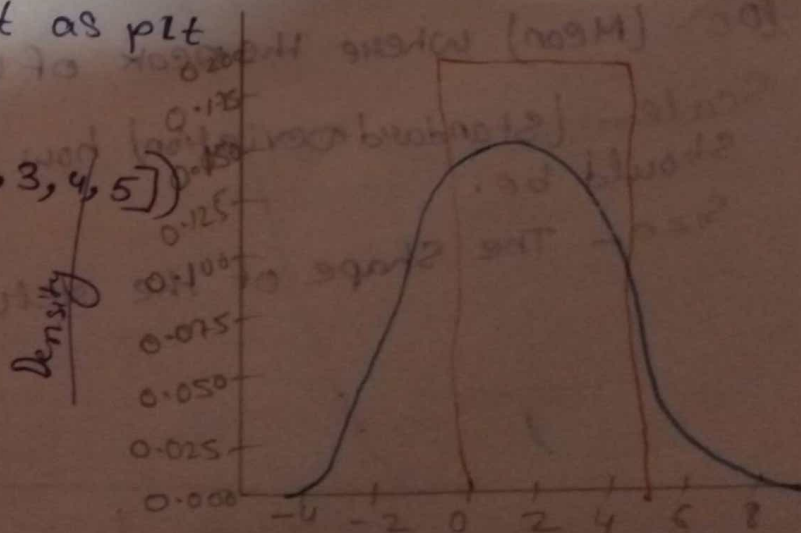 t as plt
3, 4, 5])
Density
0.200
0.175
0.150
0.125
0.100
0.075
0.050
0.025
0.000
-4 -2 0 2 4 6 8